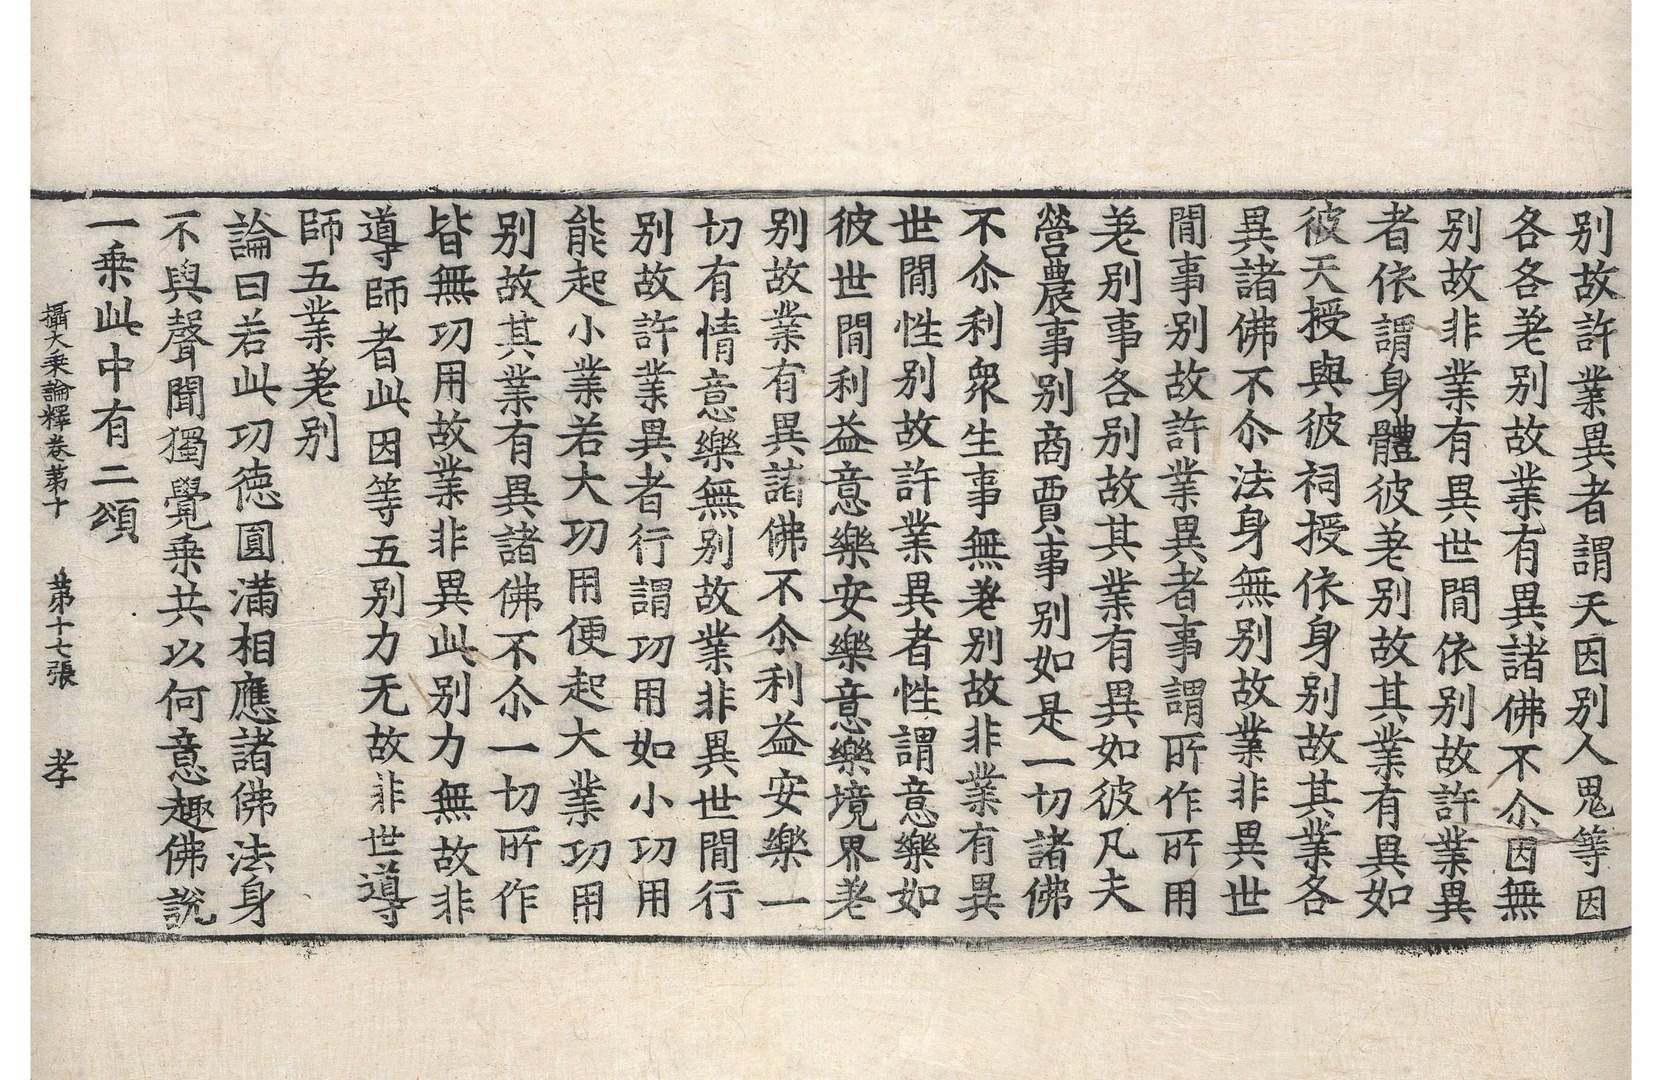 别故許業異者謂天因别人鬼等因
各各差别故業有異諸佛不尒因無
别故非業有異世間依别故許業異
者依謂身體彼差别故其業有異如
彼天授與彼祠授依身别故其業各
異諸佛不尒法身無别故業非異世
間事别故許業異者事謂所作所用
差别事各别故其業有異如彼凡夫
營農事别商賈事别如是一切諸佛
不尒利衆生事無差别故非業有異
世間性别故許業異者性謂意樂如
彼世間利益意樂安樂意樂境界差
别故業有異諸佛不尒利益安樂一
切有情意樂無别故業非異世間行
别故許業異者行謂功用如小功用
能起小業若大功用便起大業功用
别故其業有異諸佛不尒一切所作
皆無功用故業非異此别力無故非
導師者此因等五别力无故非世導
師五業差别
論曰若此功德圓滿相應諸佛法身
不與聲聞獨覺乘共以何意趣佛說
一乘此中有二頌
攝大乘論釋卷第十 第十七張 孝